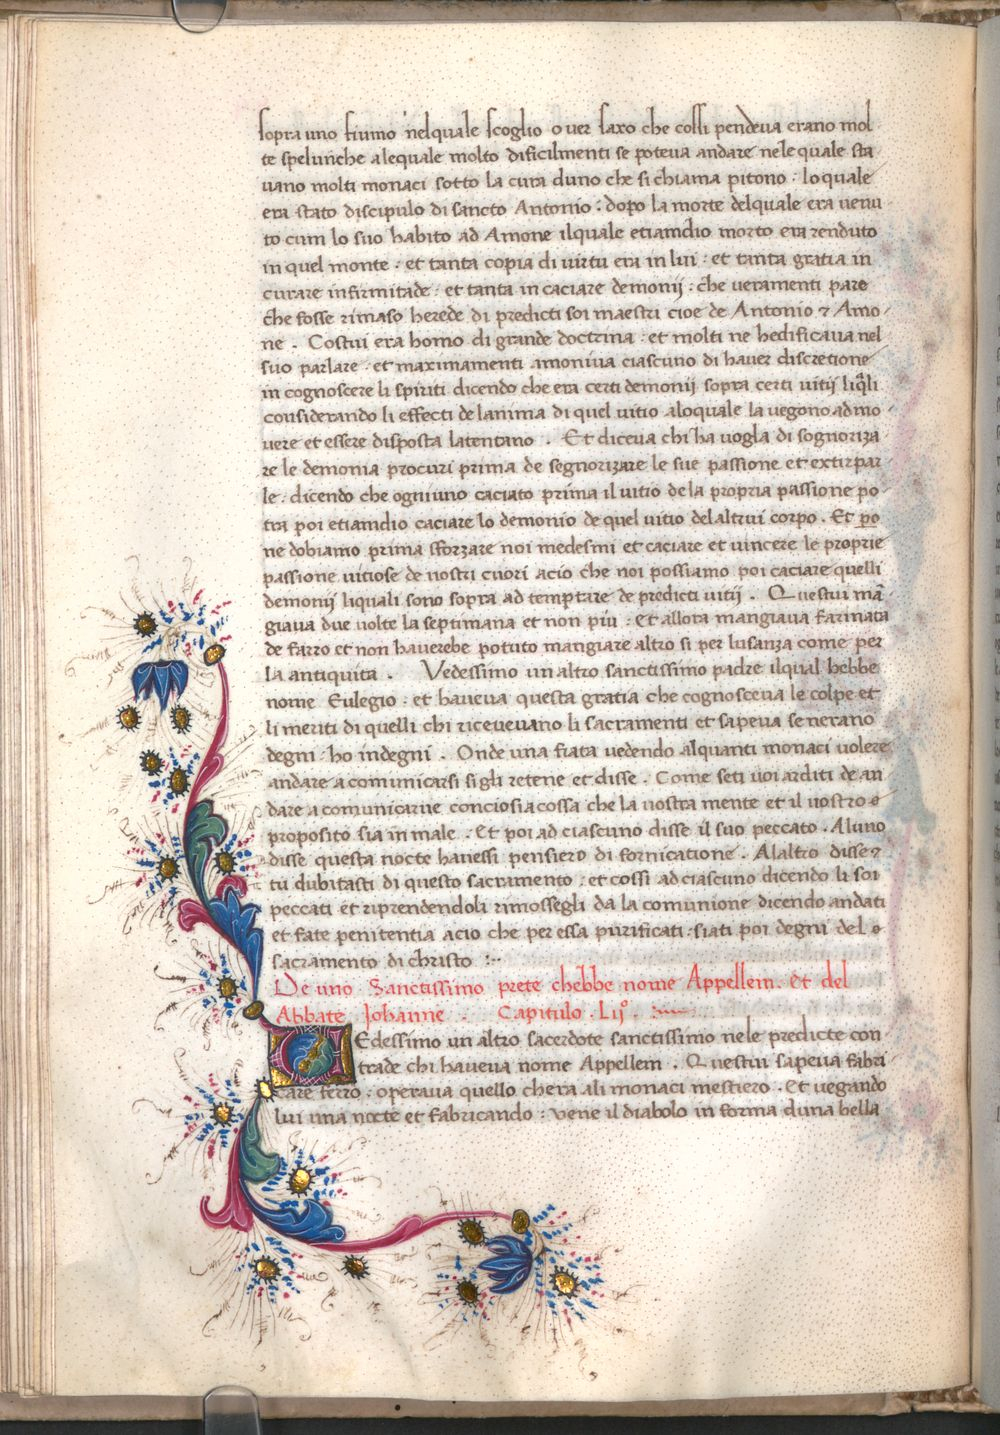 sopra uno fiumo nelquale scoglio over saxo che cossi pendeva erano mol
te spelunche alequale molto dificilmenti se poteva andare nele quale sta
vano molti monaci sotto la cura duno che si chiama pitono : lo quale
era stato discipulo di sancto Antonio : dopo la morte delquale era venu
to cum lo suo habito ad Amone ilquale etiamdio morto era renduto
in quel monte : et tanta copia di virtu era in lui : et tanta gratia in
curare infirmitade : et tanta in caciare demonij : che veramenti pare
che fosse rimaso herede di predicti soi maestri cioe de Antonio ⁊ Amo
ne . Costui era homo di grande doctrina : et molti ne hedificava nel
suo parlare : et maximamenti amoniva ciascuno di haver discretione
in cognoscere li spiriti dicendo che era certi demonij sopra certi vitij liq̃li
considerando li effecti de lanima di quel vitio aloquale la vegono ad mo
vere et essere disposta la tentano . Et diceva chi ha vogla di sognoriza
re le demonia procuri prima de segnorizare le sue passione et extirpar
le : dicendo che ogniuno caciato prima il vitio de la propria passione po
tra poi etiamdio caciare lo demonio de quel vitio delaltrui corpo . Et ꝑo
ne dobiamo prima sforzare noi medesmi et caciare et vincere le proprie
passione vitiose de nostri cuori acio che noi possiamo poi caciare quelli
demonij liquali sono sopra ad temptare de predicti vitij . Questui mã
giava due volte la septimana et non piu : Et allora mangiava farinata
de farro et non haverebe potuto mangiare altro si per lusanza come per
la antiquita . Vedessimo un altro sanctissimo padre ilqual hebbe
nome Eulegio : et haveva questa gratia che cognosceva le colpe et
li meriti di quelli chi ricevevano li sacramenti et sapeva se nerano
degni : ho indegni . Onde una fiata vedendo alquanti monaci volere
andare a comunicarsi si gli retene et disse . Come seti voi arditi de an
dare a comunicarve conciosia cossa che la vostra mente et il vostro
proposito sia in male . Et poi ad ciascuno disse il suo peccato . Aluno
disse questa nocte havessi pensiero di fornicatione . Alaltro disse
tu dubitasti di questo sacramento : et cossi ad ciascuno dicendo li soi
peccati et riprendendoli rimossegli da la comunione dicendo andati
et fate penitentia acio che per essa purificati : siati poi degni del
sacramento di christo :~
De uno Sanctissimo prete chebbe nome Appellem . et del
Abbate Johanne . Capitulo . Lijº .
Vedessimo un altro sacerdote sanctissimo nele predicte con
trade chi haveva nome Appellem . Questui sapeva fabri
care ferro : operava quello chera ali monaci mestiero . Et vegando
lui una nocte et fabricando : vene il diabolo in forma duna bella